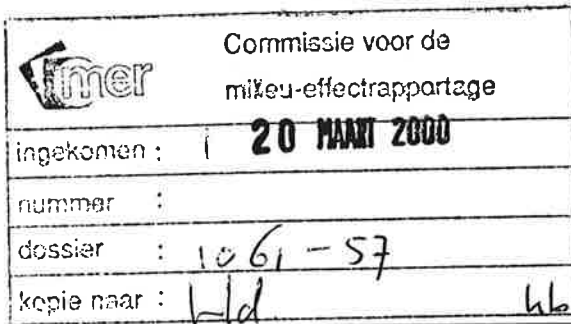 mer
Commissie voor de
milieu-effectrapportage
ingekomen : 20 MAART 2000
nummer :
dossier : 1061-57
kopie naar : Hd hb